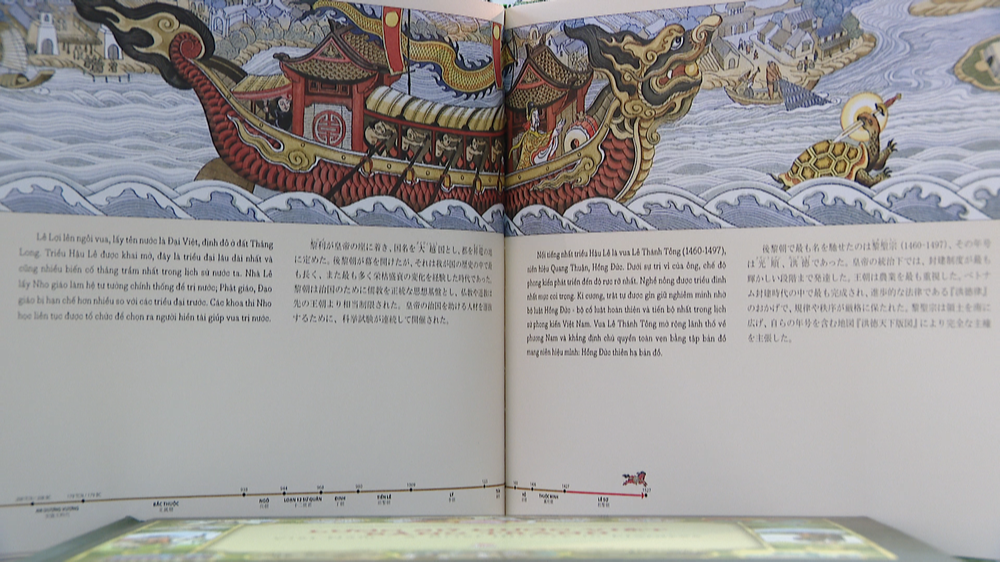 Lê Lợi lên ngôi vua, lấy tên nước là Đại Việt, định đô ở đất Thăng
Long. Triều Hậu Lê được khai mở, đây là triều đại lâu dài nhất và
cũng nhiều biến cố thăng trầm nhất trong lịch sử nước ta. Nhà Lê
lấy Nho giáo làm hệ tư tưởng chính thống để trị nước; Phật giáo, Đạo
giáo bị hạn chế hơn nhiều so với các triều đại trước. Các khoa thi Nho
học liên tục được tổ chức để chọn ra người hiền tài giúp vua trị nước.
黎利が皇帝の座に着き、国名を大越国とし、都を昇竜の地
に定めた。後黎朝が幕を開けたが、それは我が国の歴史の中で最
も長く、また最も多く栄枯盛衰の変化を経験した時代であった。
黎朝は治国のために儒教を正統な思想基盤とし、仏教や道教は
先の王朝より相当制限された。皇帝の治国を助ける人材を選抜
するために、科挙試験が連続して開催された。
Nổi tiếng nhất triều Hậu Lê là vua Lê Thánh Tông (1460-1497),
niên hiệu Quang Thuận, Hồng Đức. Dưới sự trị vì của ông, chế độ
phong kiến phát triển đến độ rực rỡ nhất. Nghề nông được triều đình
nhất mực coi trọng. Kỉ cương, trật tự được gìn giữ nghiêm minh nhờ
bộ luật Hồng Đức - bộ cổ luật hoàn thiện và tiến bộ nhất trong lịch
sử phong kiến Việt Nam. Vua Lê Thánh Tông mở rộng lãnh thổ về
phương Nam và khẳng định chủ quyền toàn vẹn bằng tập bản đồ
mang niên hiệu mình: Hồng Đức thiên hạ bản đồ.
後黎朝で最も名を馳せたのは黎聖宗 (1460-1497)、その年号
は光順、洪徳であった。皇帝の統治下では、封建制度が最も
輝かしい段階まで発達した。王朝は農業を最も重視した。ベトナ
ム封建時代の中で最も完成され、進歩的な法律である『洪徳律』
のおかげで、規律や秩序が厳格に保たれた。黎聖宗は領土を南に
広げ、自らの年号を含む地図『洪徳天下版図』により完全な主権
を主張した。
BẮC THUỘC
NGÔ
LOẠN 12 SỨ QUÂN
ĐINH
TIỀN LÊ
LÝ
LÊ SƠ
1527